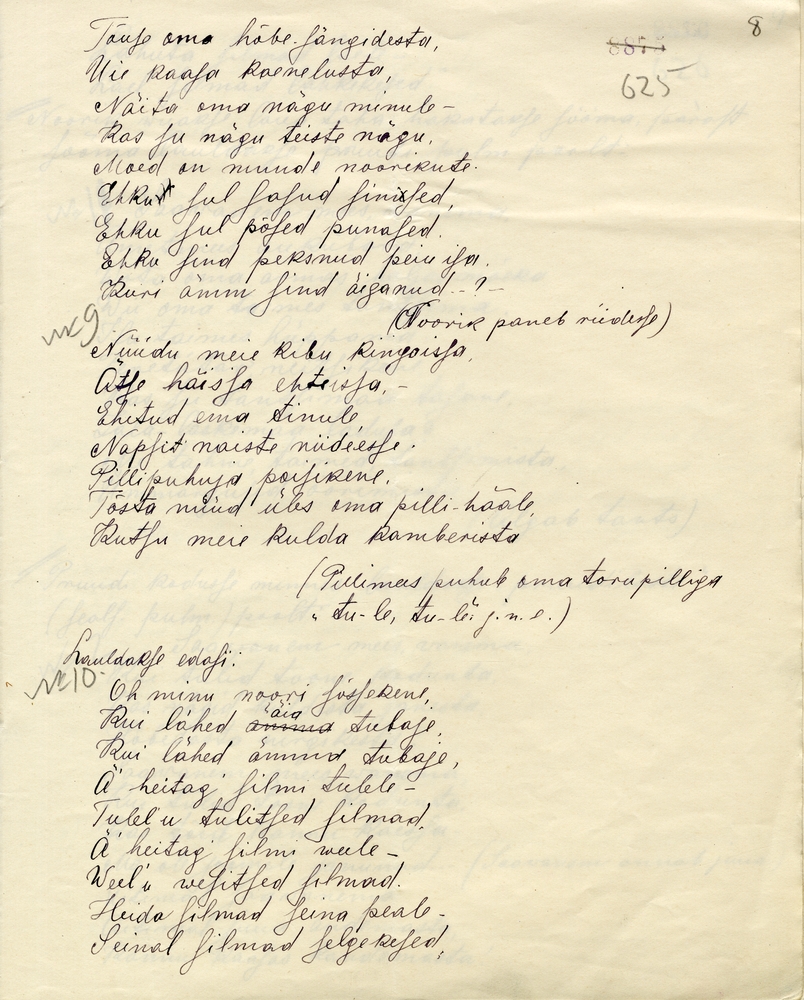 8
8877
625
Tõuse oma hõbe-sängidesta,
Uie kaasa kaenelusta,
Näita oma nägu minule –
Kas su nägu teiste nägu,
Moed on muude noorikute.
Ehku sul sasud sinised,
Ehku sul põsed punased.
Ehku sind peksnud peiu isa.
Kuri ämm sind äiganud – ? –
(Noorik paneb riidesse)
nr 9
Nüüdu meie kibu kingoissa,
Ätse häissa ehteissa, –
Ehitud ema tinule
Napsit naiste riideesse.
Pillipuhuja poisikene,
Tõsta nüüd üles oma pilli-hääle,
Kutsu meie kulda kamberista
(Pillimees puhub oma torupilliga
„ tu-le, tu-le: j.n.e.)
Lauldakse edasi:
nr 10.
Oh minu noori sõssekene,
Kui lähed äia tubaje,
Kui lähed ämma tubaje,
Ä' heitag' silmi tulele –
Tulel'u tulitsed silmad,
Ä' heitag' silmi weele –
Weel'u wesitsed silmad.
Heida silmad seina peale –
Seinal silmad selgekesed,